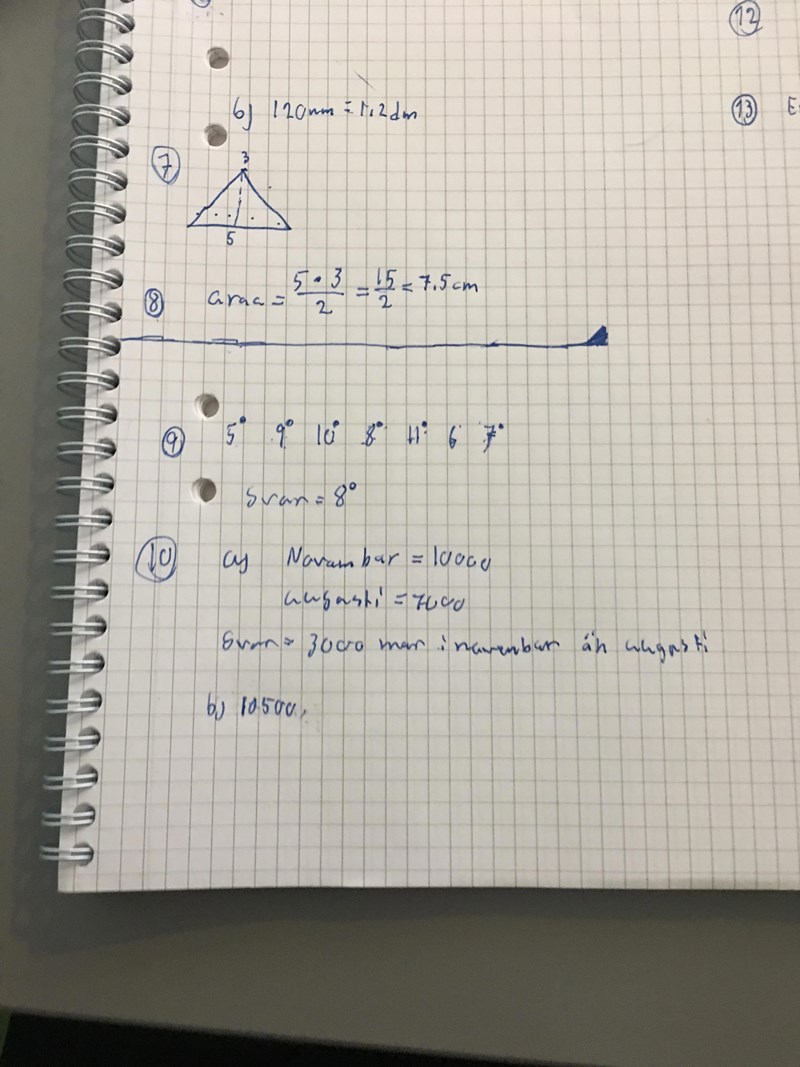 b) 120mm = 1.2dm
7
3
5
8 araa = 5 · 3 / 2 = 15 / 2 = 7.5cm
9 5° 9° 10° 8° 11° 6 7°
Svar = 8°
10 a) Novambar = 10000
augasti = 7000
Svar = 3000 mer i novenbar än augasti
b) 10500.
12
13